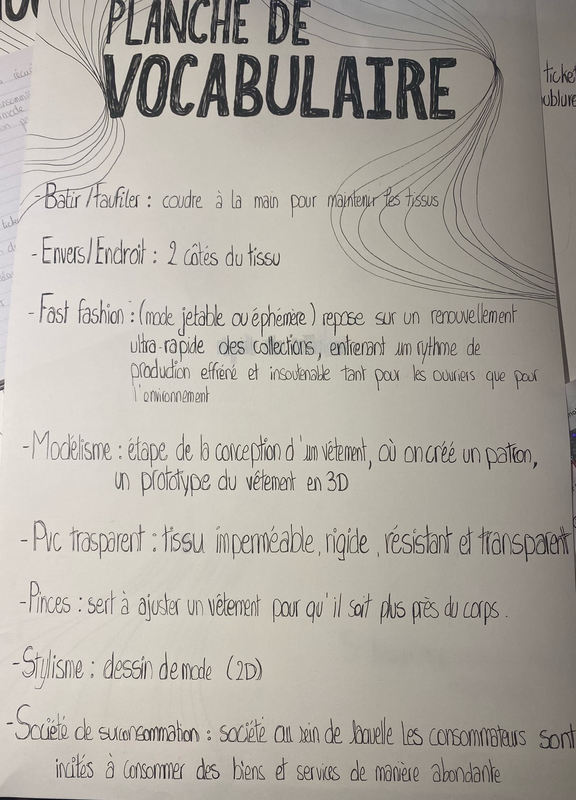 PLANCHE DE
VOCABULAIRE
-Batir/Faufiler : coudre à la main pour maintenir les tissus
-Envers/Endroit : 2 côtés du tissu
-Fast fashion : (mode jetable ou éphémère) repose sur un renouvellement
ultra-rapide des collections, entrenant um rythme de
production efféné et insoutenable tant pour les ouvriers que pour
l'environnement
-Modélisme : étape de la conception d'um vêtement, où on créé un patron,
un prototype du vêtement en 3D
-Pvc trasparent : tissu imperméable, rigide, résistant et transparent
-Pinces : sert à ajuster un vêtement pour qu'il soit plus près du corps.
-Stylisme : dessin de mode (2D)
-Société de surconsommation : société au sein de laquelle les consommateurs sont
incités à consommer des biens et services de manière abondante
ticket